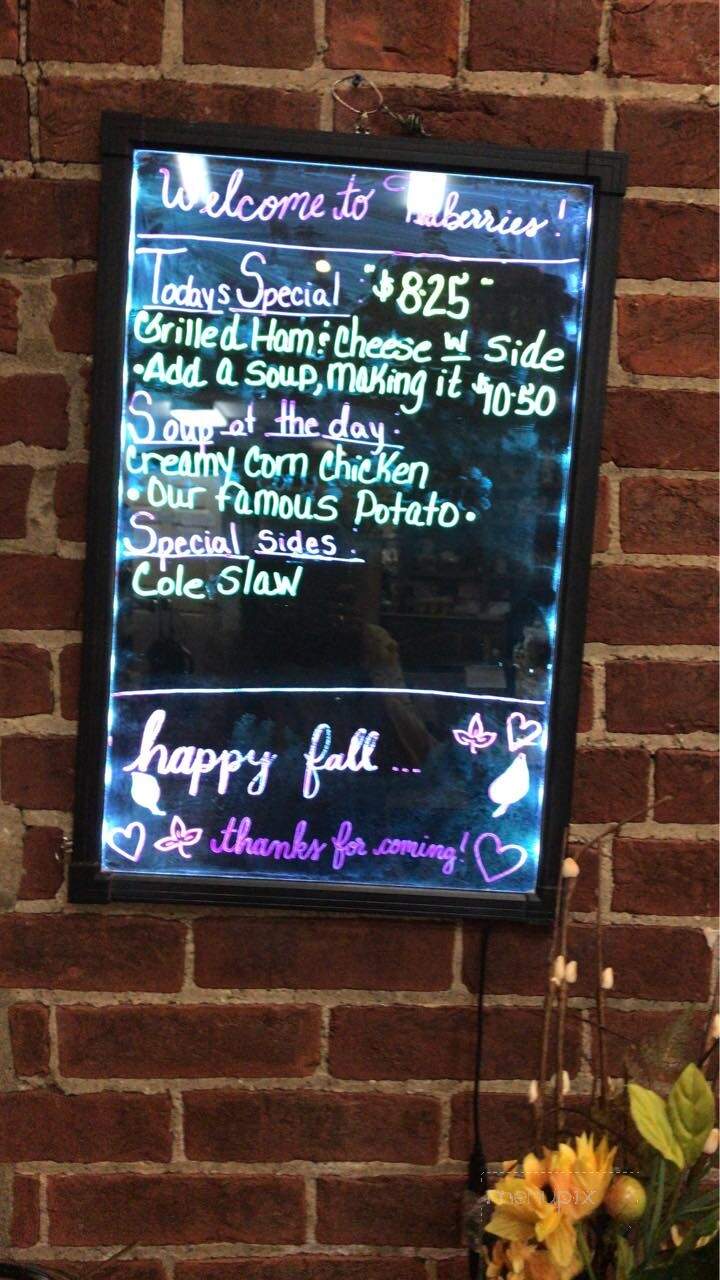 Welcome to
Todays Special: "$8.25"
Grilled Ham & Cheese w side
•Add a soup, making it $10.50
Soup of the day.
Creamy Corn Chicken
•Our famous Potato•
Special sides:
Cole Slaw
happy fall...
thanks for coming!
menupix